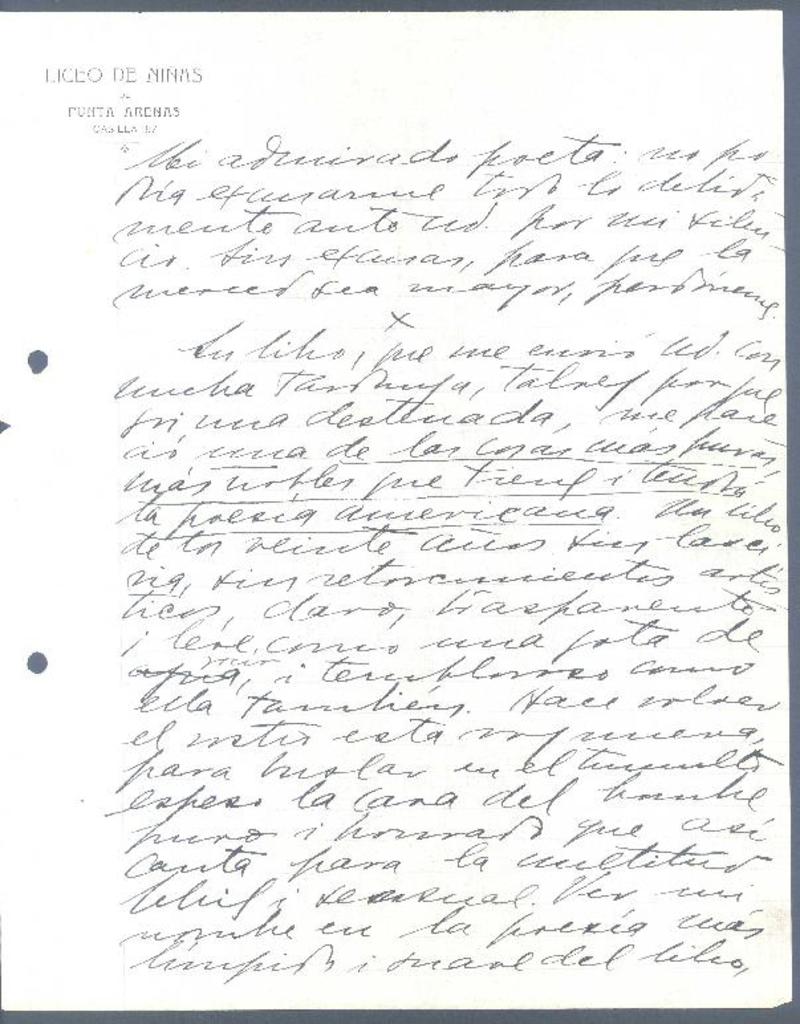 LICEO DE NIÑAS
DE
PUNTA ARENAS
CASILLA
Mi admirado poeta: no po
día excusarme todo lo debida
mente ante Ud. por mi silen
cio. Sin excusas, para que la
merced sea mayor, perdóneme.
x
Su libro, que me envió Ud. con
mucha tardanza, talvez porque
soi una desterrada, me pare
ció una de las cosas más puras,
más nobles que tiene i tendrá
la poesía americana. Un libro
de los veinte años sin lasci
via, sin retorcimientos artís
ticos, claro, trasparente
i leve, como una gota de
agua, i tembloroso como
ella también. Hace volver
el rostro esta voz nueva,
para buscar en el tumulto
espeso la cara del hombre
puro i honrado que así
canta para la multitud
débil i sensual. Ver mi
nombre en la poesía más
límpida i suave del libro,